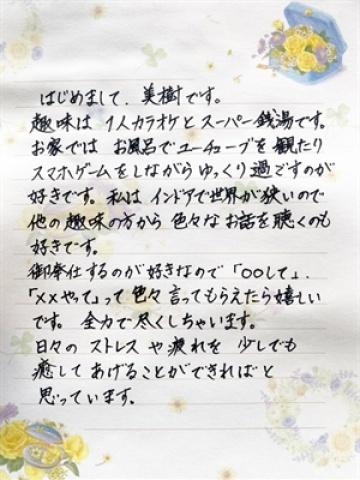 はじめまして、美樹です。
趣味は 1人カラオケとスーパー銭湯です。
お家では お風呂でユーチューブを観たり
スマホゲームをしながらゆっくり過ごすのが
好きです。私は インドアで世界が狭いので
他の趣味の方から色々なお話を聴くのも
好きです。
御奉仕するのが好きなので「〇〇して」、
「××やって」って色々言ってもらえたら嬉しい
です。全力で尽くしちゃいます。
日々の ストレス や疲れを 少しでも
癒して あげることができればと
思っています。